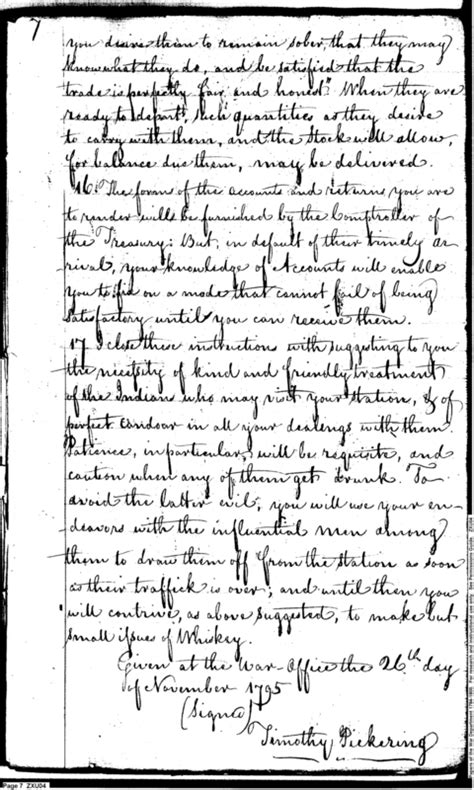 7
you desire them to remain sober, that they may
know what they do, and be satisfied that the
trade is perfectly fair and honest." When they are
ready to depart, such quantities as they desire
to carry with them, and the Stock will allow,
for balance due them, may be delivered.
16. The forms of the accounts and returns you are
to render will be furnished by the Comptroller of
the Treasury: But, in default of their timely ar
rival, your knowledge of Accounts will enable
you to fix on a mode that cannot fail of being
satisfactory until you can receive them.
17 I close these instructions with suggesting to you
the necessity of kind and friendly treatment
of the Indians who may visit your station, & of
perfect candour in all your dealings with them.
Patience, in particular, will be requisite, and
caution when any of them get drunk. To
avoid the latter evil, you will use your en-
deavors with the influential men among
them to draw them off from the station as soon
as their traffick is over; and until then you
will contrive, as above suggested, to make but
small issues of Whiskey.
Given at the War-Office the 26th day
of November 1795
(Signed)
Timothy Pickering
Page 7 ZXU04